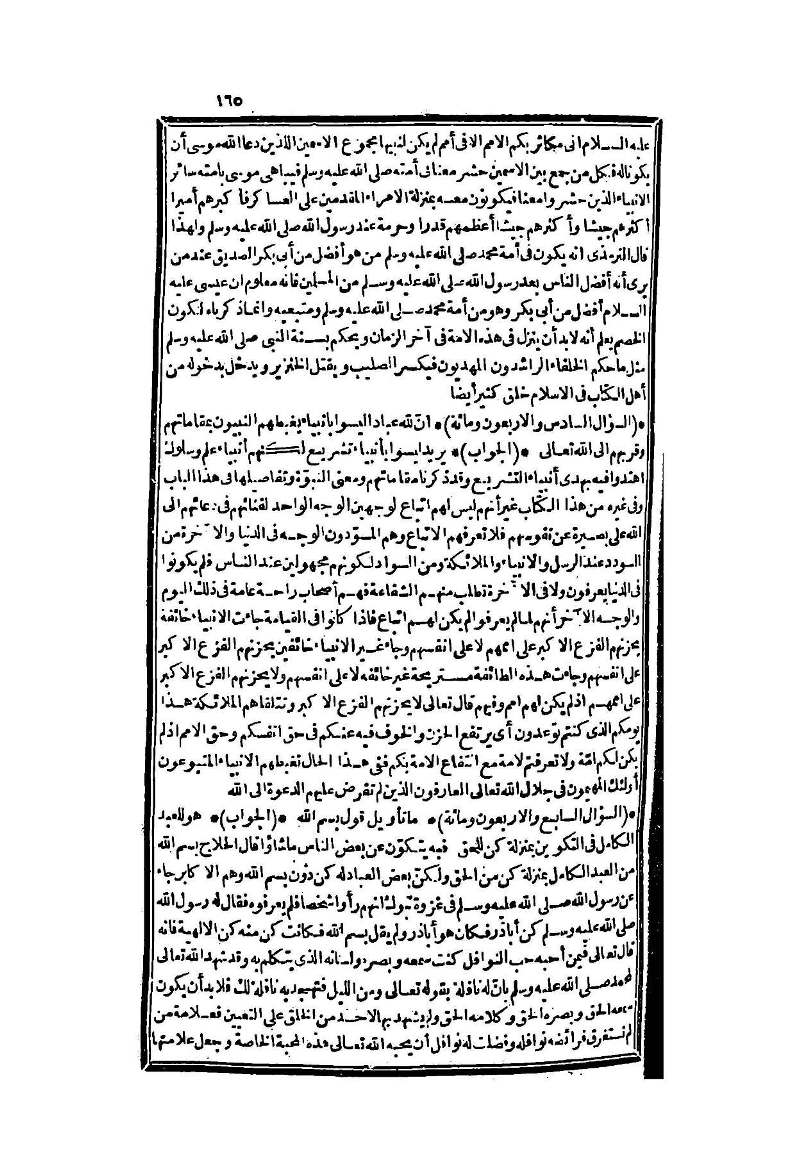 ١٦٥
عليه السلام اني مكاثر بكم الامم الا في أمم لم يكن لنبيها مجموع الاسمين اللذين دعا الله موسى أن
يكونا له فكل من جمع بين الاسمين حشر معنا في أمته صلى الله عليه وسلم فيباهي موسى بامته سائر
الانبياء الذين حشروا معنا فيكونون معه بمنزلة الامراء المقدمين على العساكر فأكبرهم أميرا
أكثرهم جيشا وأكثرهم جيشا أعظمهم قدرا وحرمة عند رسول الله صلى الله عليه وسلم ولهذا
قال الترمذى انه يكون في أمة محمد صلى الله عليه وسلم من هو أفضل من أبي بكر الصديق عند من
يرى أنه أفضل الناس بعد رسول الله صلى الله عليه وسلم من المسلمين فانه معلوم ان عيسى عليه
السلام أفضل من أبي بكر وهو من أمة محمد صلى الله عليه وسلم ومتبعيه وانما ذكرناه لكون
الخصم يعلم أنه لا بد أن ينزل في هذه الامة في آخر الزمان ويحكم بسنة النبي صلى الله عليه وسلم
مثل ما حكم الخلفاء الراشدون المهديون فيكسر الصليب ويقتل الخنزير ويدخل بدخوله من
أهل الكتاب في الاسلام خلق كثير أيضا
*(السؤال السادس والاربعون ومائة)* ان لله عبادا ليسوا بأنبياء يغبطهم النبيون بمقاماتهم
وقربهم الى الله تعالى *(الجواب)* يريد ليسوا بأنبياء تشريع لكنهم أنبياء علم وسلوك
اهتدوا فيه بهدى أنبياء التشريع وقد ذكرنا مقاماتهم ومعنى النبوة وتفاصيلها في هذا الباب
وفي غيره من هذا الكتاب غير أنهم ليس لهم اتباع لوجهين الوجه الواحد لفنائهم في دعائهم الى
الله على بصيرة عن نفوسهم فلا تعرفهم الاتباع وهم المسودون الوجه في الدنيا والآخرة من
السودد عند الرسل والانبياء والملائكة ومن السواد لكونهم مجهولين عند الناس فلم يكونوا
في الدنيا يعرفون ولا في الآخرة تطلب منهم الشفاعة فهم أصحاب راحة عامة في ذلك اليوم
والوجه الآخر أنهم لما لم يعرفوا لم يكن لهم اتباع فاذا كانوا في القيامة جاءت الانبياء خائفة
يحزنهم الفزع الاكبر على اممهم لا على انفسهم وجاء غير الانبياء خائفين يحزنهم الفزع الاكبر
على انفسهم وجاءت هذه الطائفة مستريحة غير خائفة لا على انفسهم ولا يحزنهم الفزع الاكبر
على اممهم اذ لم يكن لهم امم وفيهم قال تعالى لا يحزنهم الفزع الاكبر وتتلقاهم الملائكة هذا
يومكم الذى كنتم توعدون أى يرتفع الحزن والخوف فيه عنكم في حق انفسكم وحق الامم اذ لم
يكن لكم امّة ولا تعرفتم لامة مع انتفاع الامة بكم ففي هذا الحال تغبطهم الانبياء المتبوعون
أولئك المهيمون في جلال الله تعالى العارفون الذين لم تفرض عليهم الدعوة الى الله
*(السؤال السابع والاربعون ومائة)* ما تأويل قول بسم الله *(الجواب)* هو للعبد
الكامل في التكوين بمنزلة كن للحق فيه يتكوّن عن بعض الناس ما شاؤا قال الحلاج بسم الله
من العبد الكامل بمنزلة كن من الحق ولكن بعض العباد له كن دون بسم الله وهم الاكابر جاء
عن رسول الله صلى الله عليه وسلم في غزوة تبوك انهم رأوا شخصا فلم يعرفوه فقال له رسول الله
صلى الله عليه وسلم كن أباذر فكان هو أباذر ولم يقل بسم الله فكانت كن منه كن الالهية فانه
قال تعالى فيمن أحبه حب النوافل كنت سمعه وبصره ولسانه الذى يتكلم به وقد شهد الله تعالى
لمحمد صلى الله عليه وسلم بانّ له نافلة بقوله تعالى ومن الليل فتهجد به نافلة لك فلا بد أن يكون
سمعه الحق وبصره الحق وكلامه الحق ولم يشهد بها لاحد من الخلق على التعيين فعلامة من
لم تستغرق فرائضه نوافله وفضلت له نوافل أن يحبه الله تعالى هذه المحبة الخاصة وجعل علامتها